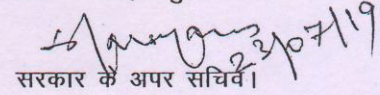 23/07/19
सरकार के अपर सचिव।